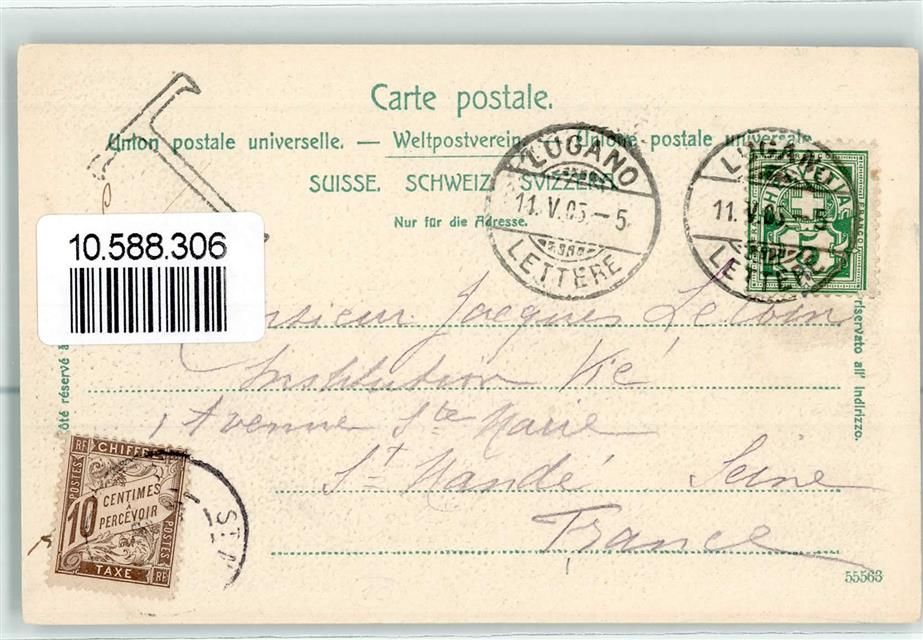 Carte postale.
Union postale universelle. — Weltpostverein. — Unione postale universale
SUISSE. SCHWEIZ. SVIZZERA.
Nur für die Adresse.
T
LUGANO
11. V. 05. – 5
LETTERE
LUGANO
11. V. 05. – 5
LETTERE
HELVETIA
FRANCO
5
10.588.306
Monsieur Jacques
Institution Vié
1 Avenue Ste Marie
St Mandé Seine
France
ôté réservé à
riservato all' indirizzo.
RF CHIFFRE
POSTES
10 CENTIMES
À
PERCEVOIR
POSTES
TAXE RF
ST
55563